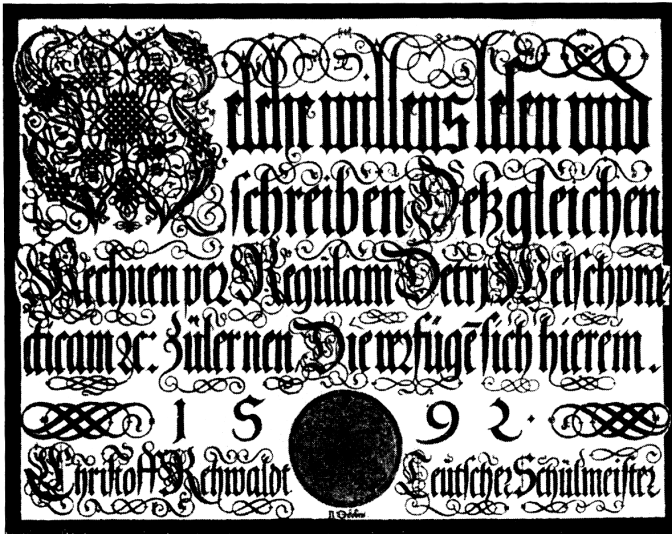 Welche willens lesen und
schreiben Deßgleichen
Rechnen per Regulam Detri Welschpra-
cticam ꝛc. Zülernen Die verfügẽ sich hierein.
1592.
Christoff Rehwaldt Teutscher Schülmeister